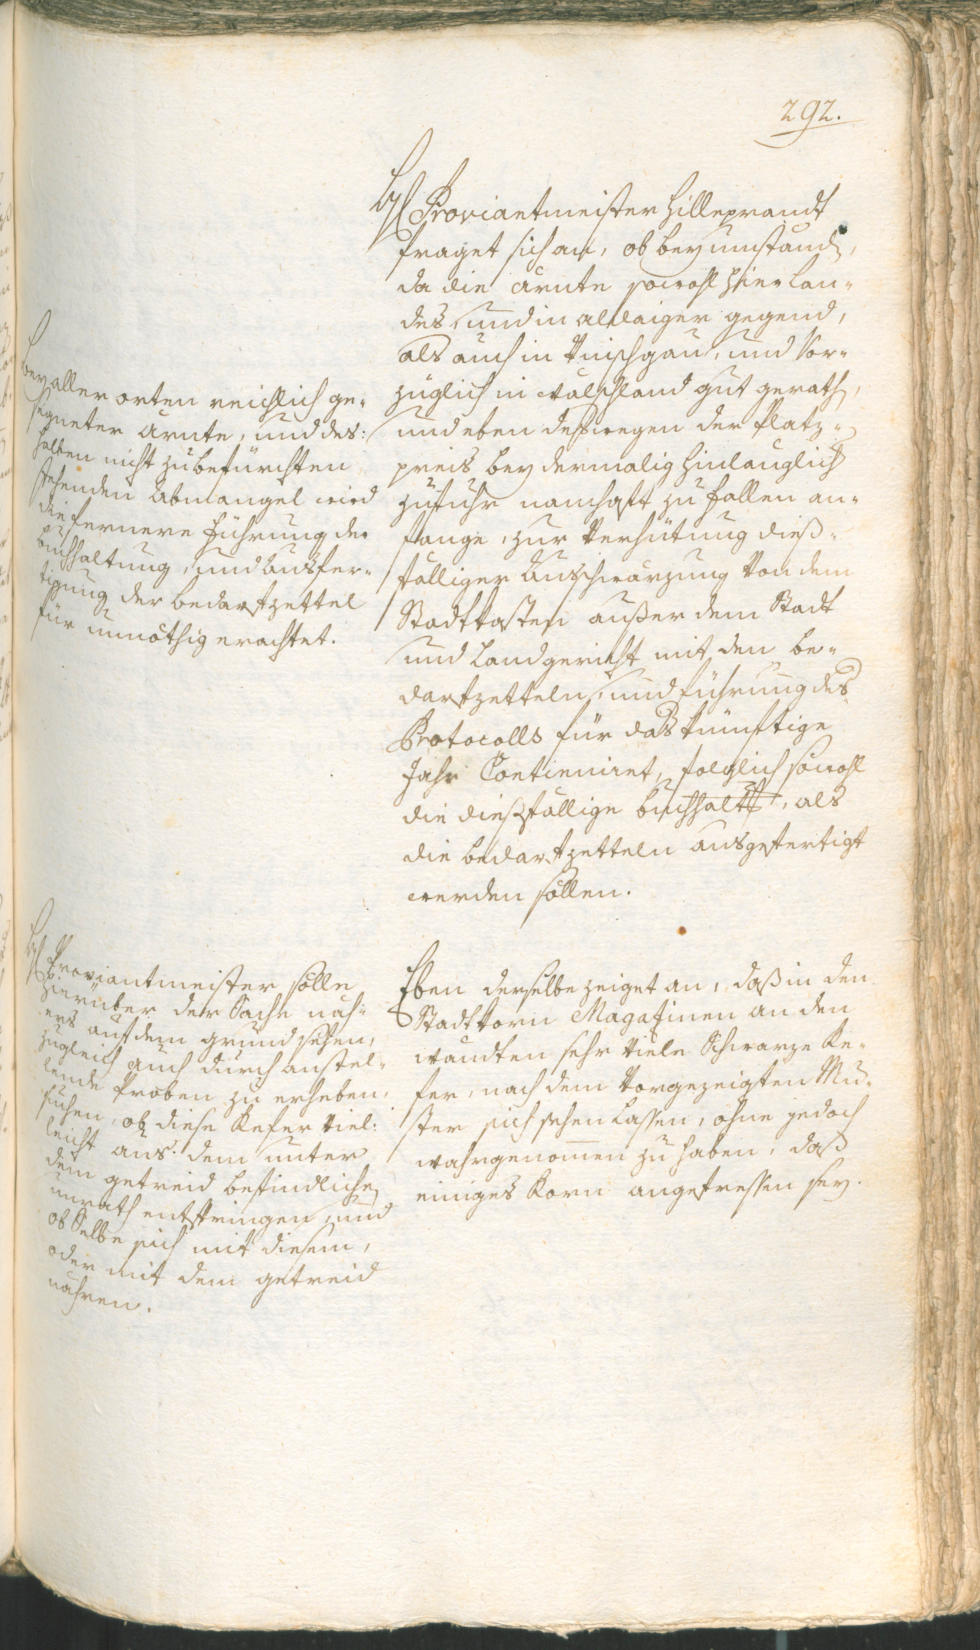 292.
H Proviantmeister Hilleprandt
fraget sich an, ob bey umständ,
da die Ärnte sowohl hier Lan-
des, und in alldaiger gegend,
als auch in Vinschgau, und Vor-
züglich in wälschland gut gerath,
und eben deßwegen der Platz-
preis bey dermalig hinlänglich
zufuhr namhaft zu fallen an-
fange, zur Verhütung dieß-
fälliger Ausschwärzung von dem
Stadtkasten außer dem Stadt
und Landgericht mit den be-
darfzetteln, und führung des
Protocolls für das künftige
Jahr Continuiret, folglich sowohl
die dießfällige buchhalt, als
die bedarfzetteln ausgefertigt
werden sollen.
Bey aller orten reichlich ge-
segneter Ärnte, und des:
halben nicht zu befürchten
stehenden Abmangel wird
die fernere führung der
buchhaltung, und Ausfer-
tigung der bedarfzettel
für unnöthig erachtet.
Eben derselbe zeiget an, daß in den
Stadtkorn Magazinen an den
wändten sehr viele Schwarze Ke-
fer, nach dem vorgezeigten Mu-
ster sich sehen lassen, ohne jedoch
wahrgenommen zu haben, daß
einiges Korn angefressen sey.
H Proviantmeister solle
hierüber der Sache näh-
ers auf dem grund sehen,
zugleich auch durch anstel-
lende Proben zu erheben
suchen, ob diese Kefer viel:
leicht aus dem unter
dem getreid befindlichen
unrath entspringen, und
ob Selbe sich mit diesem,
oder mit dem getreid
nähren.